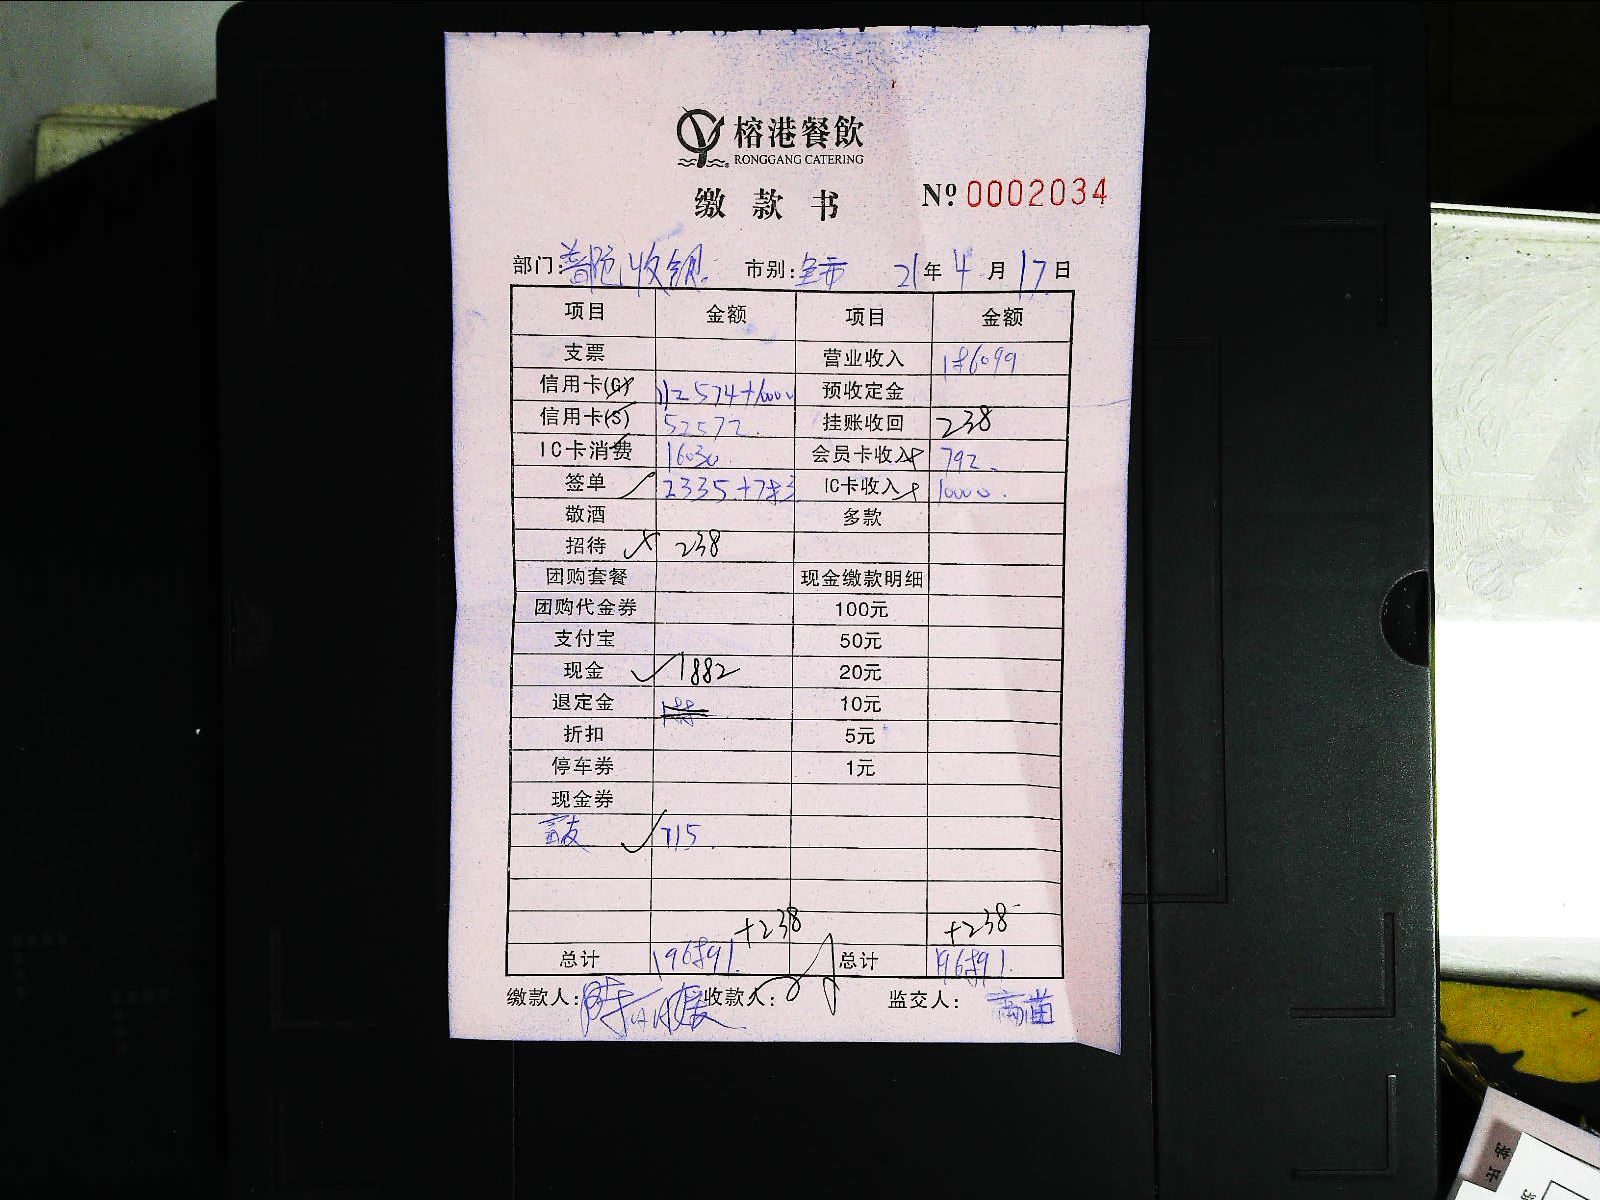 榕港餐飲
RONGGANG CATERING
缴款书 Nº 0002034
部门: 普陀收银. 市别: 全市 21年4月17日
项目 金额 项目 金额
支票 营业收入 186099
信用卡(G) 112574+10000 预收定金
信用卡(S) 52572. 挂账收回 238
IC卡消费 16030. 会员卡收入 792.
签单 2335+783 IC卡收入 10000.
敬酒 多款
招待 238
团购套餐 现金缴款明细
团购代金券 100元
支付宝 50元
现金 1882 20元
退定金 10元
折扣 5元
停车券 1元
现金券
富友 715.
+238 +238
总计 196891. 总计 196891.
缴款人: 收款人: 监交人: